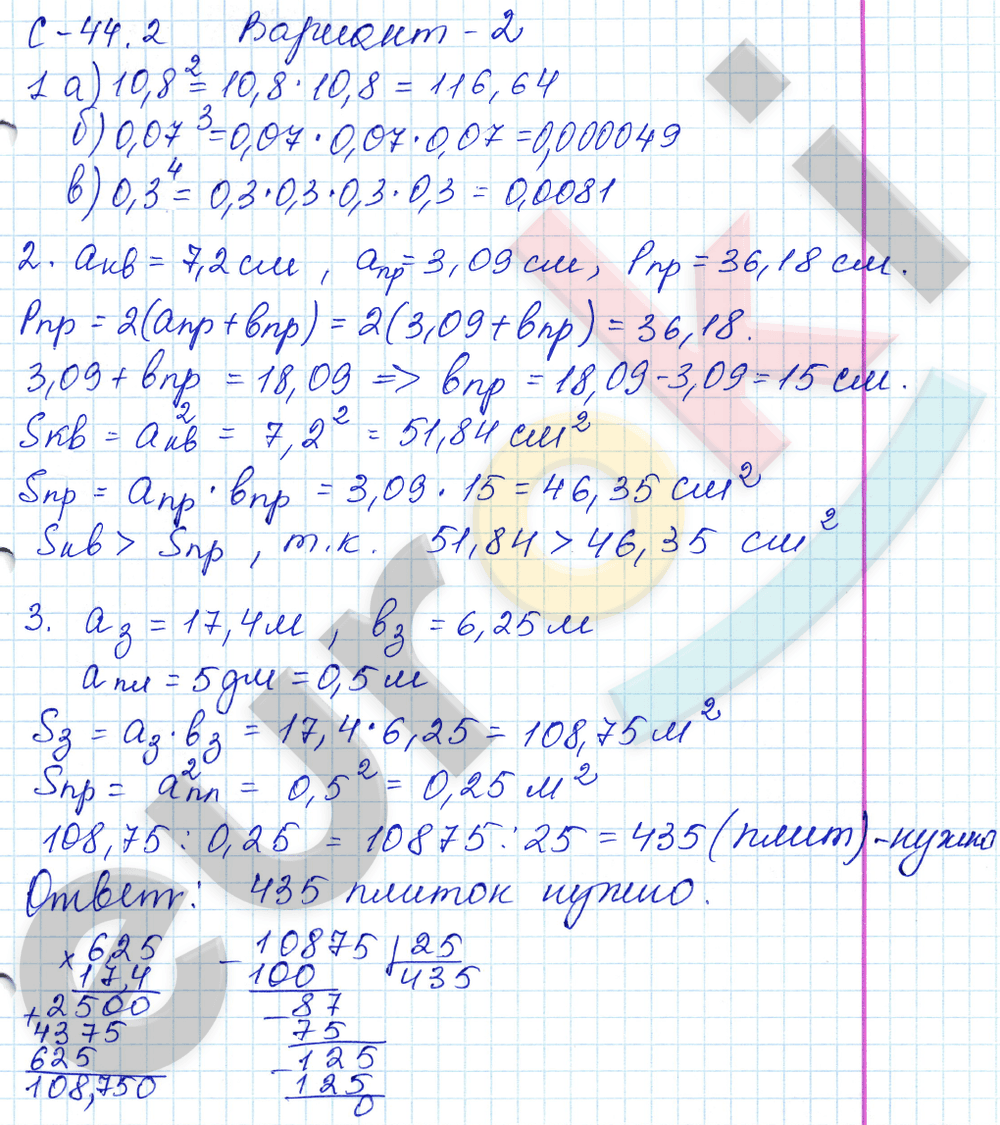 С-44.2 Вариант-2
1 а) 10,8² = 10,8·10,8 = 116,64
б) 0,07³ = 0,07·0,07·0,07 = 0,000049
в) 0,3⁴ = 0,3·0,3·0,3·0,3 = 0,0081
2. aкв = 7,2 см, aпр = 3,09 см, Pпр = 36,18 см.
Pпр = 2(aпр + bпр) = 2(3,09 + bпр) = 36,18.
3,09 + bпр = 18,09 => bпр = 18,09 - 3,09 = 15 см.
Sкв = a²кв = 7,2² = 51,84 см²
Sпр = aпр · bпр = 3,09 · 15 = 46,35 см²
Sкв > Sпр, т.к. 51,84 > 46,35 см²
3. aз = 17,4 м, bз = 6,25 м
aпл = 5 дм = 0,5 м
Sз = aз · bз = 17,4 · 6,25 = 108,75 м²
Sпр = a²пл = 0,5² = 0,25 м²
108,75 : 0,25 = 10875 : 25 = 435 (плит) - нужно
Ответ: 435 плиток нужно.
× 6,25 - 10875 | 25
17,4 100 435
+ 2500 - 87
4375 75
625 - 125
108,750 125
0
euroki